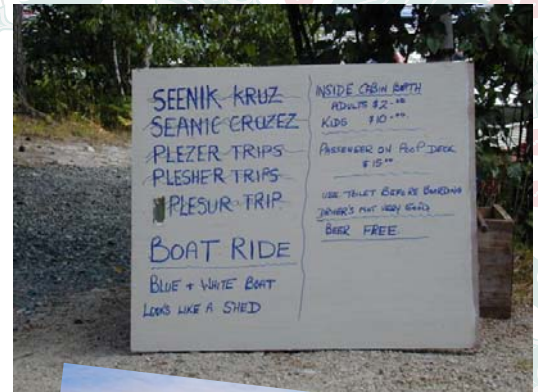 SEENIK KRUZ
SEANIC CRUZEZ
PLEZER TRIPS
PLESHER TRIPS
PLESUR TRIP
BOAT RIDE
BLUE + WHITE BOAT
LOOKS LIKE A SHED
INSIDE CABIN BERTH
ADULTS $2.00
KIDS $10.00
PASSENGER ON POOP DECK
$15.00
USE TOILET BEFORE BOARDING
DRIVER'S NOT VERY GOOD
BEER FREE